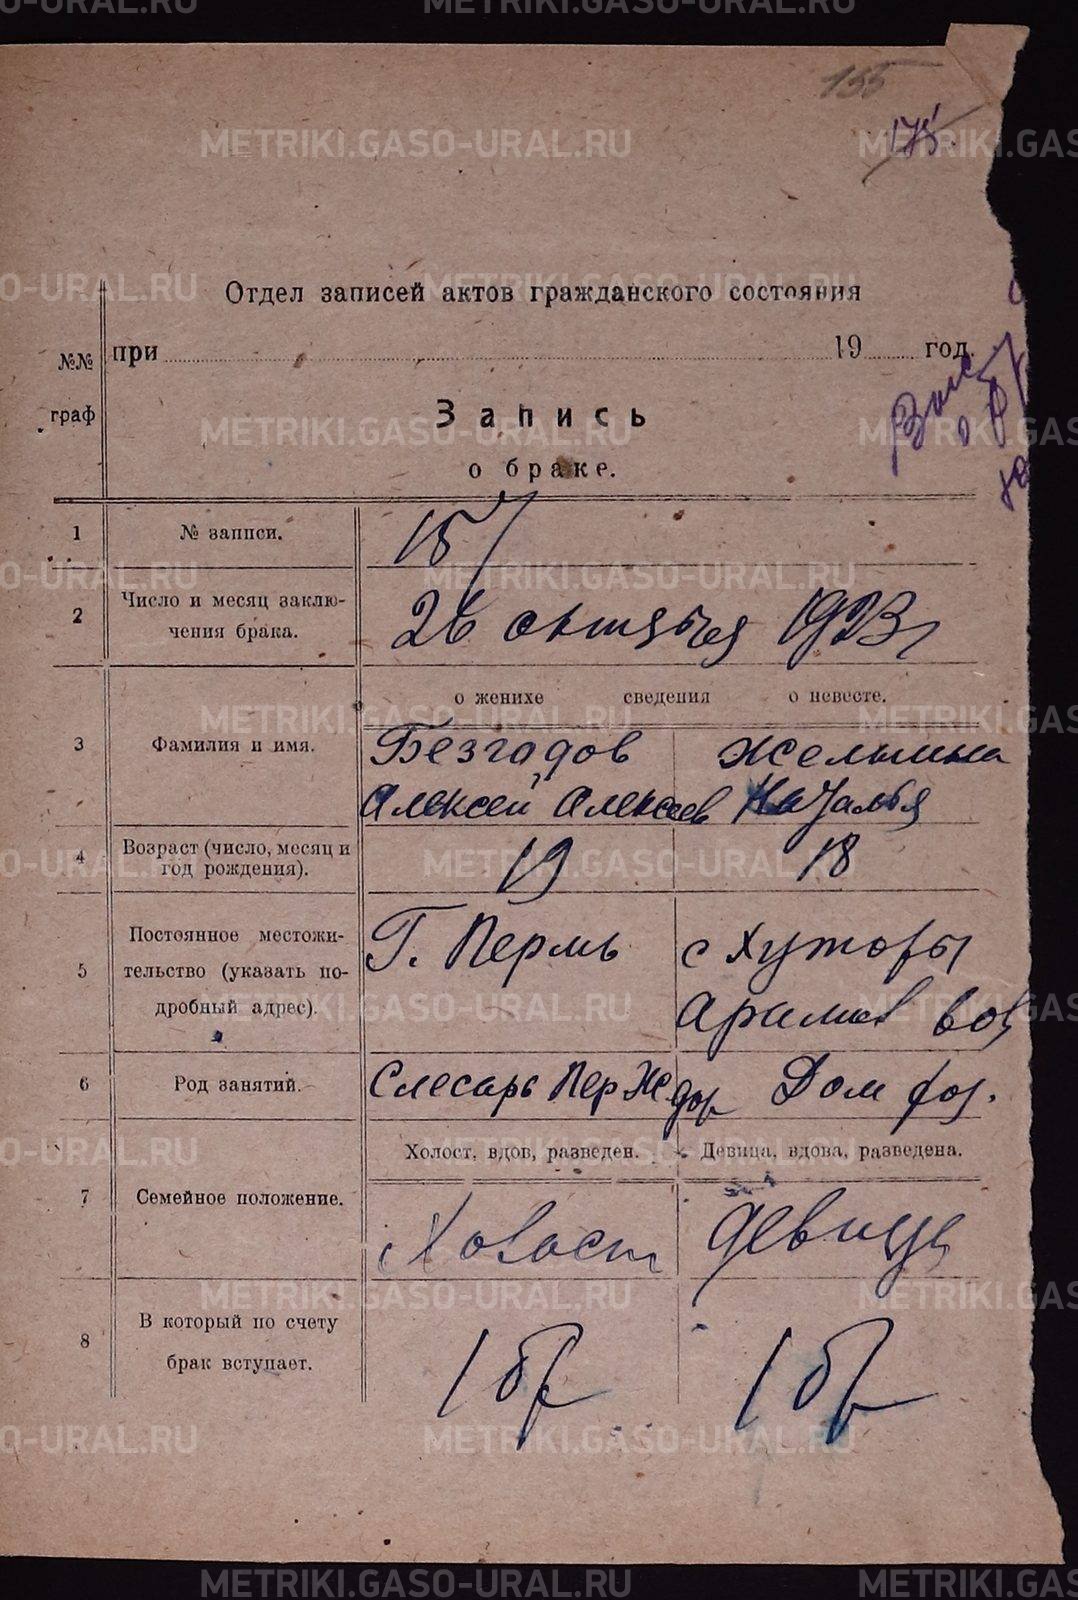 155
175
Отдел записей актов гражданского состояния
№№ граф
при 19 год.
Запись
о браке.
1 № записи. 15
2 Число и месяц заклю-
чения брака.
26 октября 1923
о женихе сведения о невесте.
3 Фамилия и имя.
Безгадов
Алексей Алексеев
Желнина
Наталья
4 Возраст (число, месяц и
год рождения).
19
18
5 Постоянное местожи-
тельство (указать по-
дробный адрес).
Г. Пермь
с Хуторы
Арамил вол
6 Род занятий.
Слесарь Пер Ж дор
Дом хоз.
Холост, вдов, разведен.
Девица, вдова, разведена.
7 Семейное положение.
Холост
девица
8 В который по счету
брак вступает.
1 бр
1 бр
METRIKI.GASO-URAL.RU